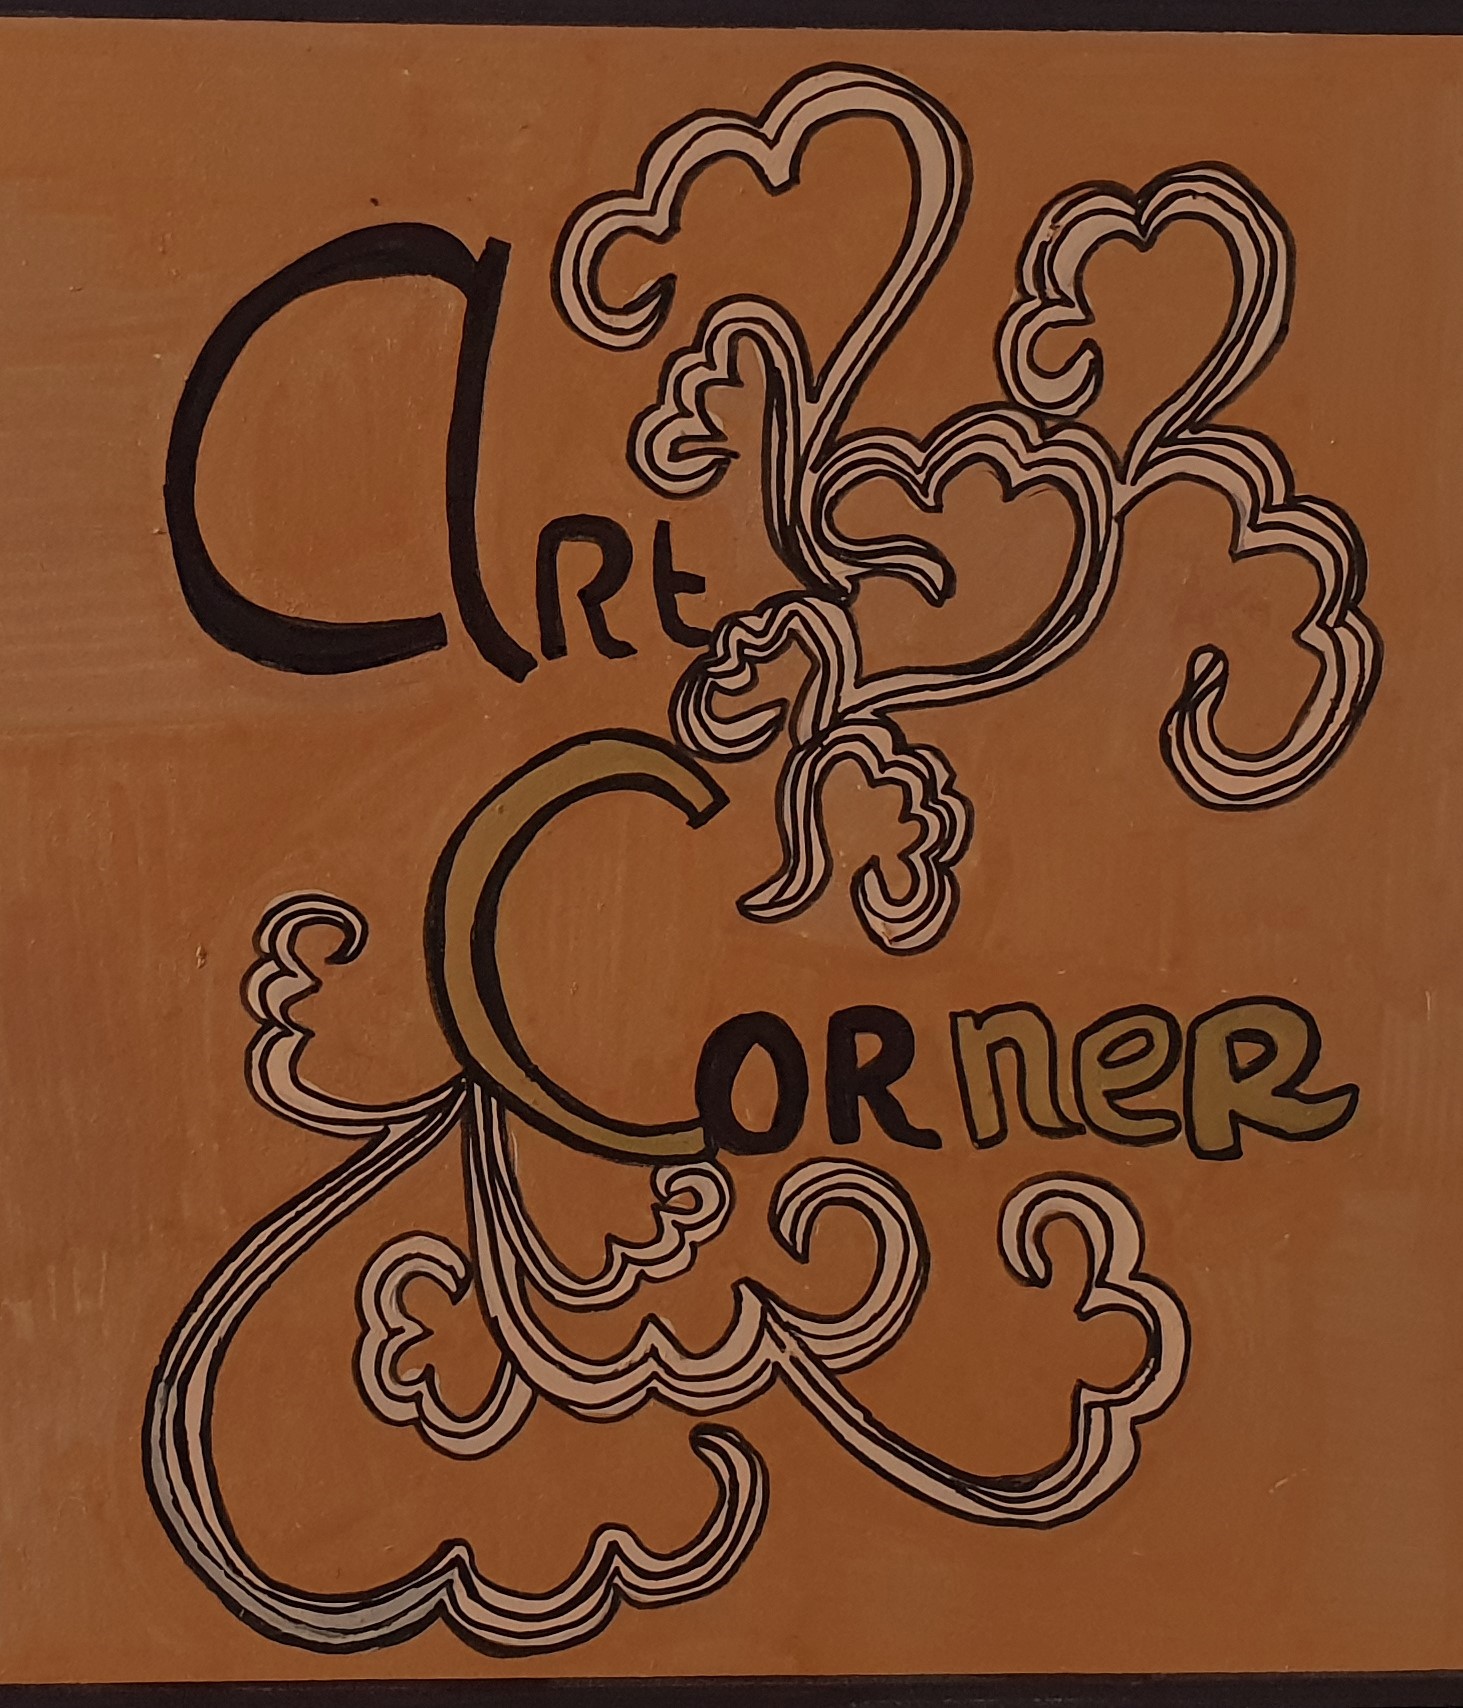 Art
Corner